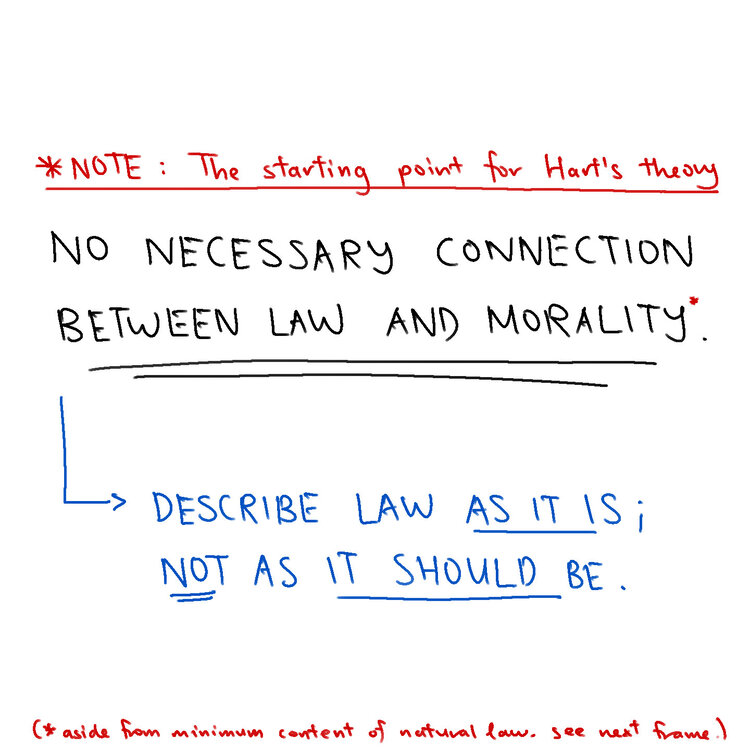 *NOTE : The starting point for Hart's theory
NO NECESSARY CONNECTION
BETWEEN LAW AND MORALITY*.
DESCRIBE LAW AS IT IS;
NOT AS IT SHOULD BE.
(* aside from minimum content of natural law. see next frame.)